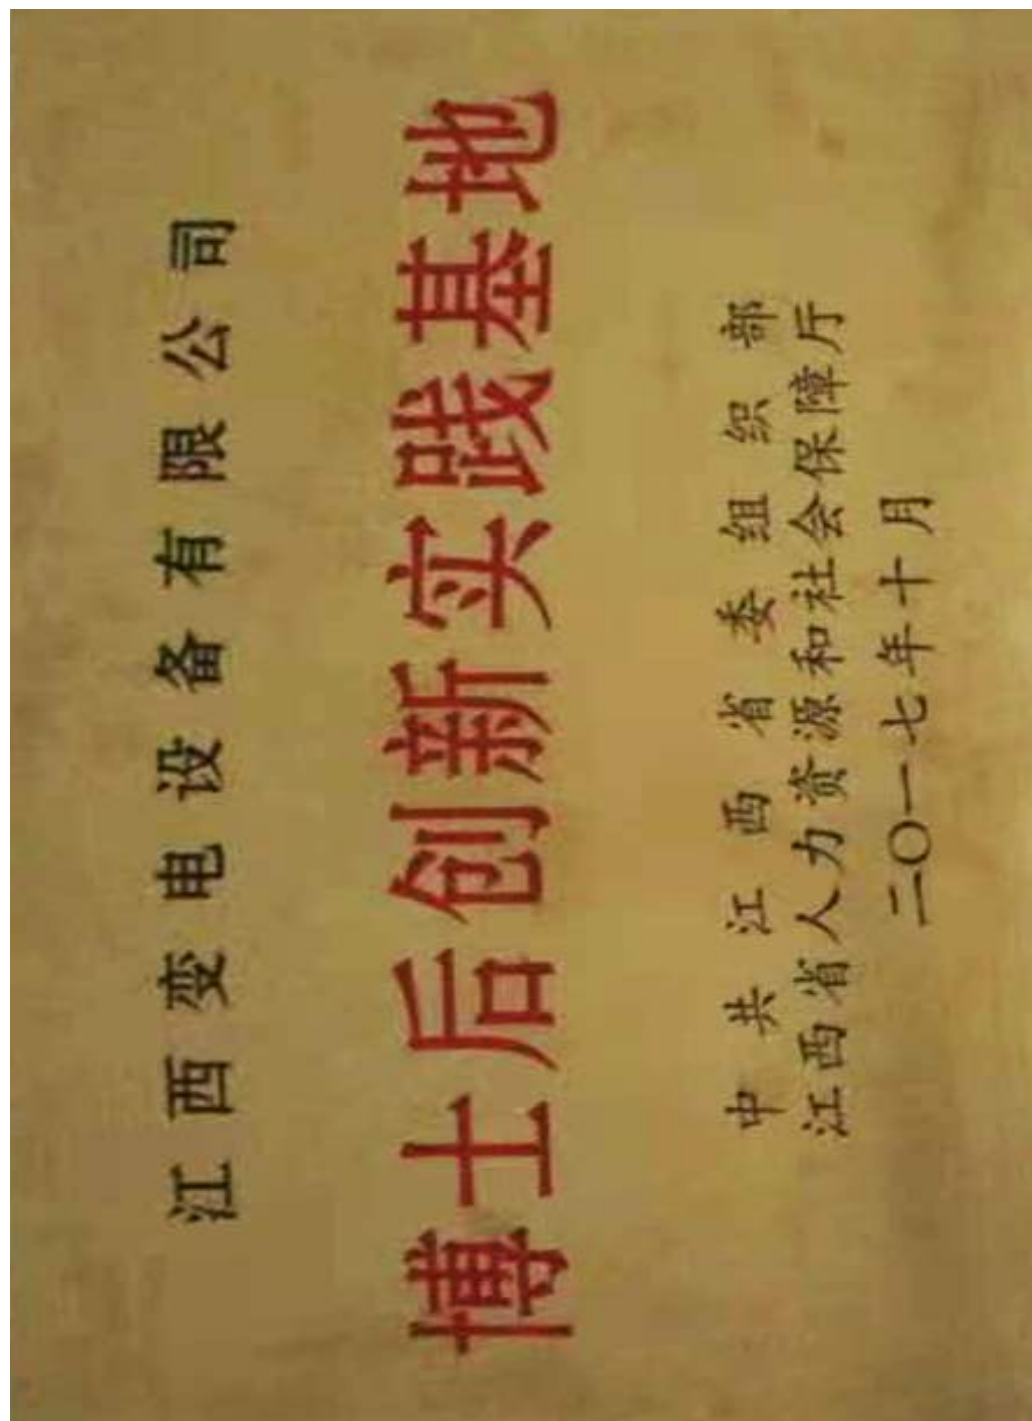 江西变电设备有限公司
博士后创新实践基地
中共江西省委组织部
江西省人力资源和社会保障厅
二〇一七年十月